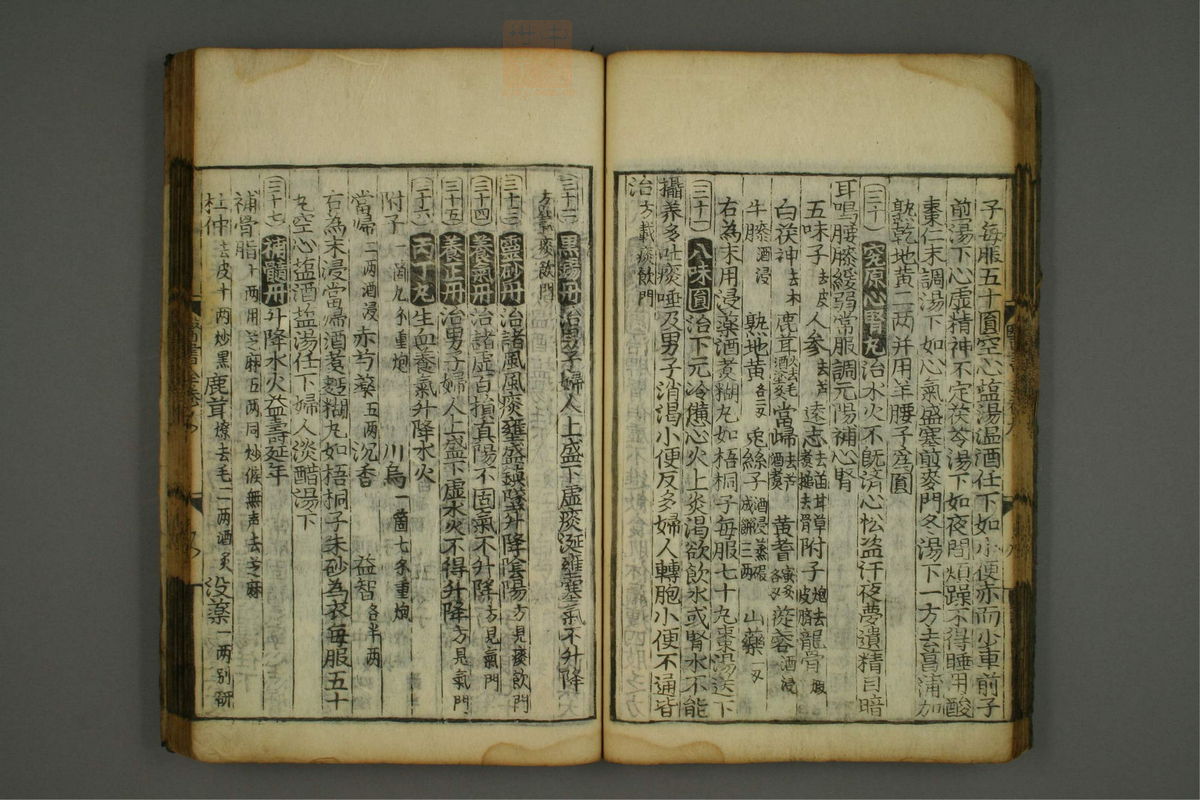 子每服五十圓空心塩湯温酒任下如小便赤而少車前子
前湯下心虚精神不定茯苓湯下如夜間煩躁不得睡用酸
棗仁末調湯下如心氣盛塞煎麥門冬湯下一方去菖蒲加
熟乾地黄二两并用羊腰子為圓
〔三十〕究原心腎丸治水火不既济心忪盗汗夜夢遺精目暗
耳鳴腰膝緩弱常服調元陽補心腎
五味子去皮人參去芦遠志去苗甘草煮搥去骨附子炮去皮臍龍骨煅
白茯神去木 鹿茸 當歸去芦酒煮 黄耆蜜炙各 蓯蓉酒浸
牛膝酒浸 熟地黄各二两 兎絲子酒浸蒸碾成餅三两 山藥一两
右為末用浸藥酒煮糊丸如梧桐子每服七十丸棗湯送下
〔三十一〕八味圓治下元冷憊心火上炎渴欲飲水或腎水不能
攝养多吐痰唾及男子消渴小便反多婦人轉胞小便不通皆
治方載痰飲門
〔三十二〕黒錫丹治男子婦人上盛下虚痰涎壅塞氣不升降
方載痰飲門
〔三十三〕靈砂丹治諸風風痰壅盛鎮墜升降陰陽方見痰飲門
〔三十四〕養氣丹治諸虚百損真陽不固氣不升降方見氣門
〔三十五〕養正丹治男子婦人上盛下虚水火不得升降方見氣門
〔三十六〕丙丁丸生血養氣升降水火
附子一箇九分重炮 川烏一箇七分重炮
當歸二两酒浸 赤芍藥五两沉香 益智各半两
右為末浸當歸酒煮麪糊丸如梧桐子朱砂為衣每服五十
丸空心塩酒塩湯任下婦人淡醋湯下
〔三十七〕補髓丹升降水火益壽延年
補骨脂十两用芝麻五两同炒候無声去芝麻
杜仲去皮十两炒黒鹿茸燎去毛一两酒炙 没藥一两别研